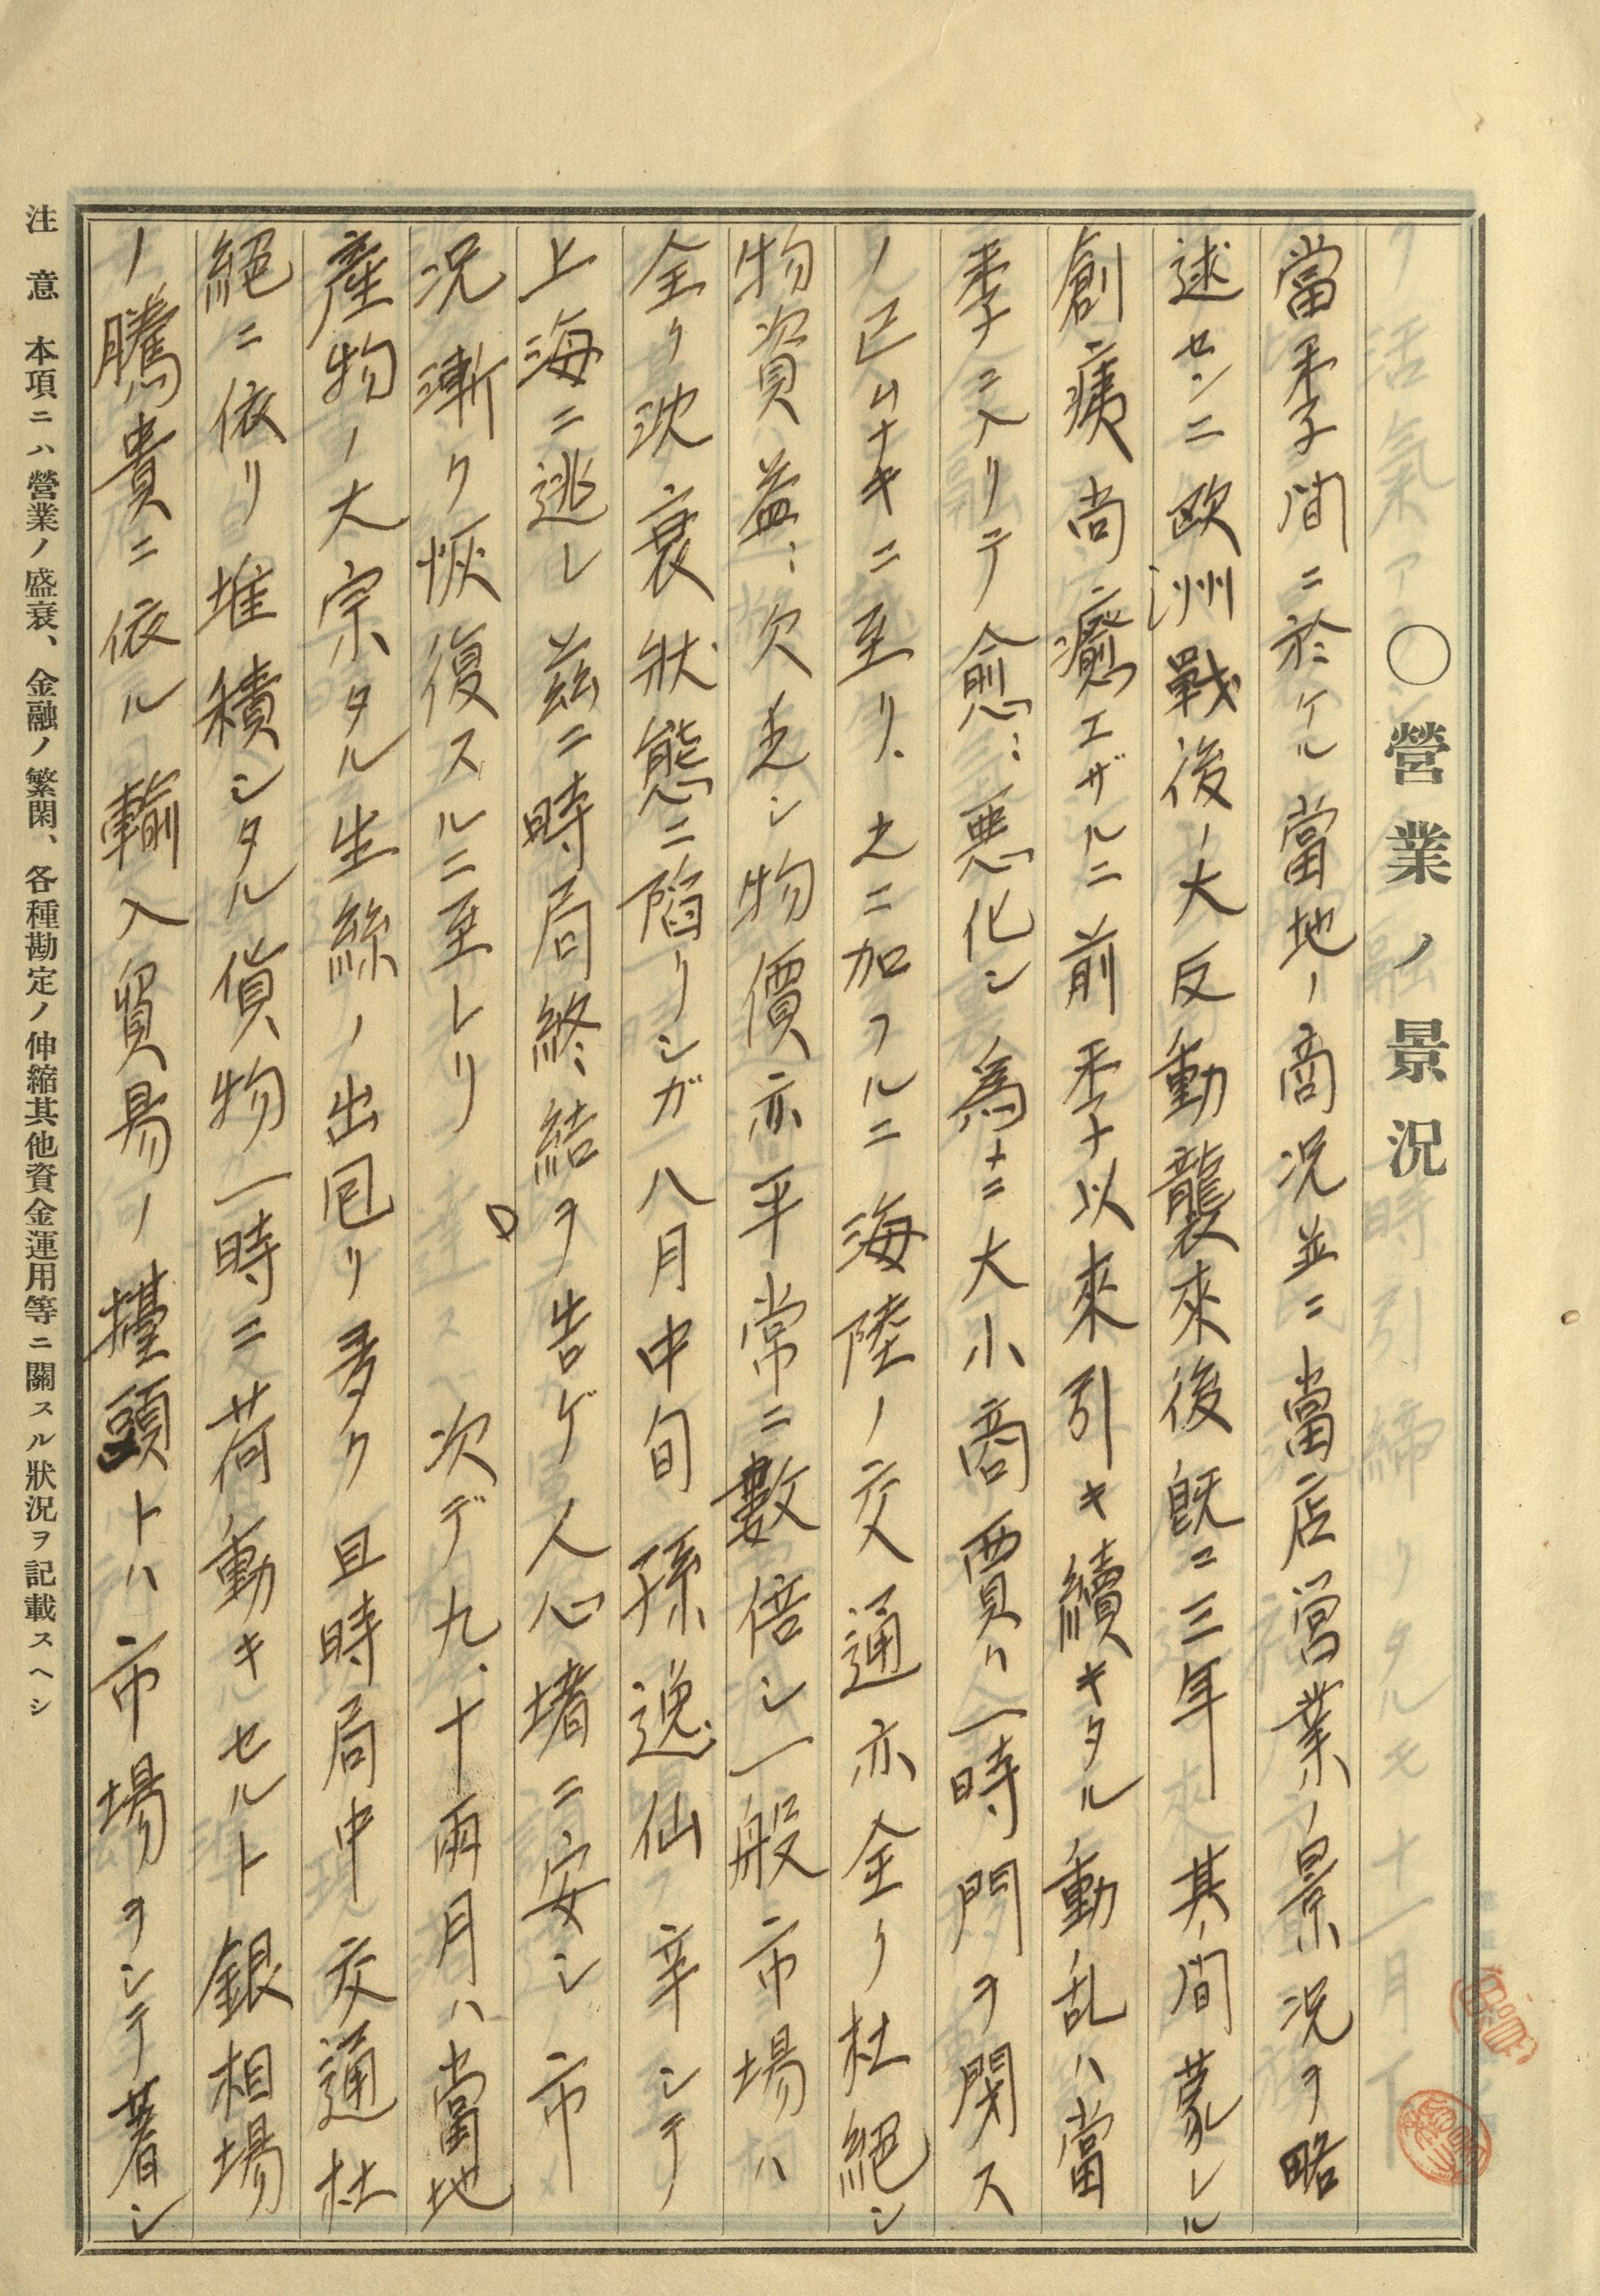 〇營業ノ景況
當季間ニ於ケル當地ノ商況並ニ當店営業ノ景況ヲ略
述センニ欧洲戰後ノ大反動襲來後既ニ三年其ノ間蒙レル
創痍尚癒エザルニ前季以來引キ續キタル動乱ハ當
季ニ入リテ愈〻悪化シ為ニ大小商賈ハ一時門ヲ閉ス
ノ已ムナキニ至リ、之ニ加フルニ海陸ノ交通亦全ク杜絕シ
物資益〻欠乏シ物價亦平常ニ數倍シ一般市場ハ
全ク沈衰狀態ニ陷リシガ八月中旬孫逸仙辛シテ
上海ニ逃レ茲ニ時局終結ヲ告ゲ人心堵ニ安シ市
況漸ク恢復スルニ至レリ 次デ九、十両月ハ當地
産物ノ大宗タル生絲ノ出囘リ多ク且時局中交通杜
絕ニ依リ堆積シタル貨物一時ニ荷動キセルト銀相場
ノ騰貴ニ依ル輸入貿易ノ擡頭トハ市場ヲシテ著シ
注意 本項ニハ營業ノ盛衰、金融ノ繁閑、各種勘定ノ伸縮其他資金運用等ニ關スル狀況ヲ記載スヘシ